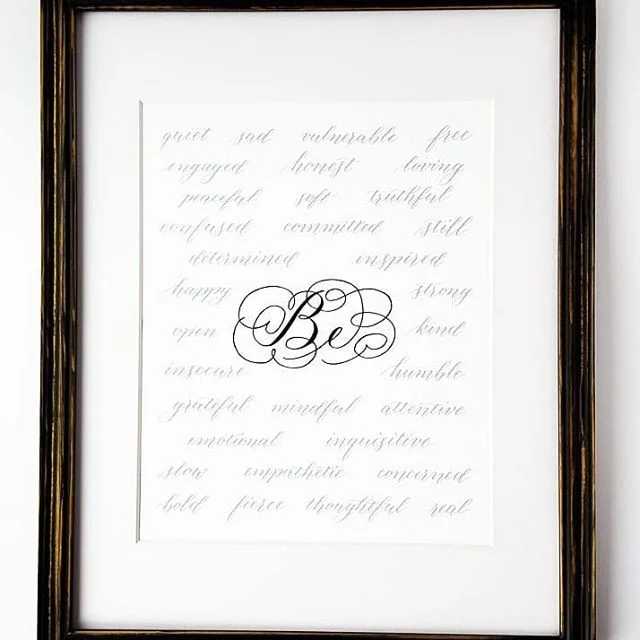 quiet sad vulnerable free
engaged honest loving
peaceful soft truthful
confused committed still
determined inspired
happy strong
Be
open kind
insecure humble
grateful mindful attentive
emotional inquisitive
slow empathetic concerned
bold fierce thoughtful real